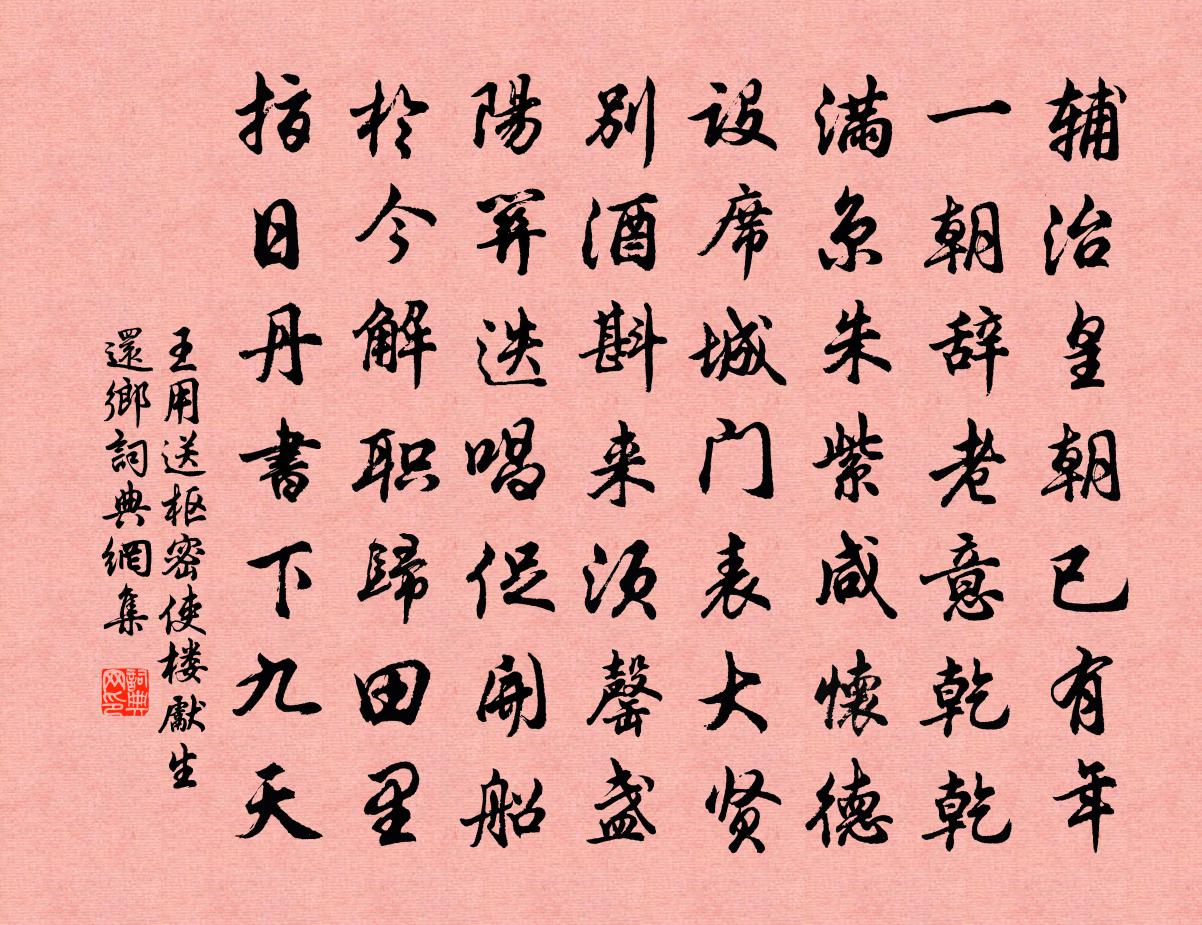 辅治皇朝已有年
一朝辞老意乾乾
满京朱紫咸懷德
设席城门表大贤
别酒斟来须罄盏
陽关迭唱促開船
於今解职歸田里
指日丹書下九天
王用送枢密使楼獻生
還鄉詞典網集
詞典网印